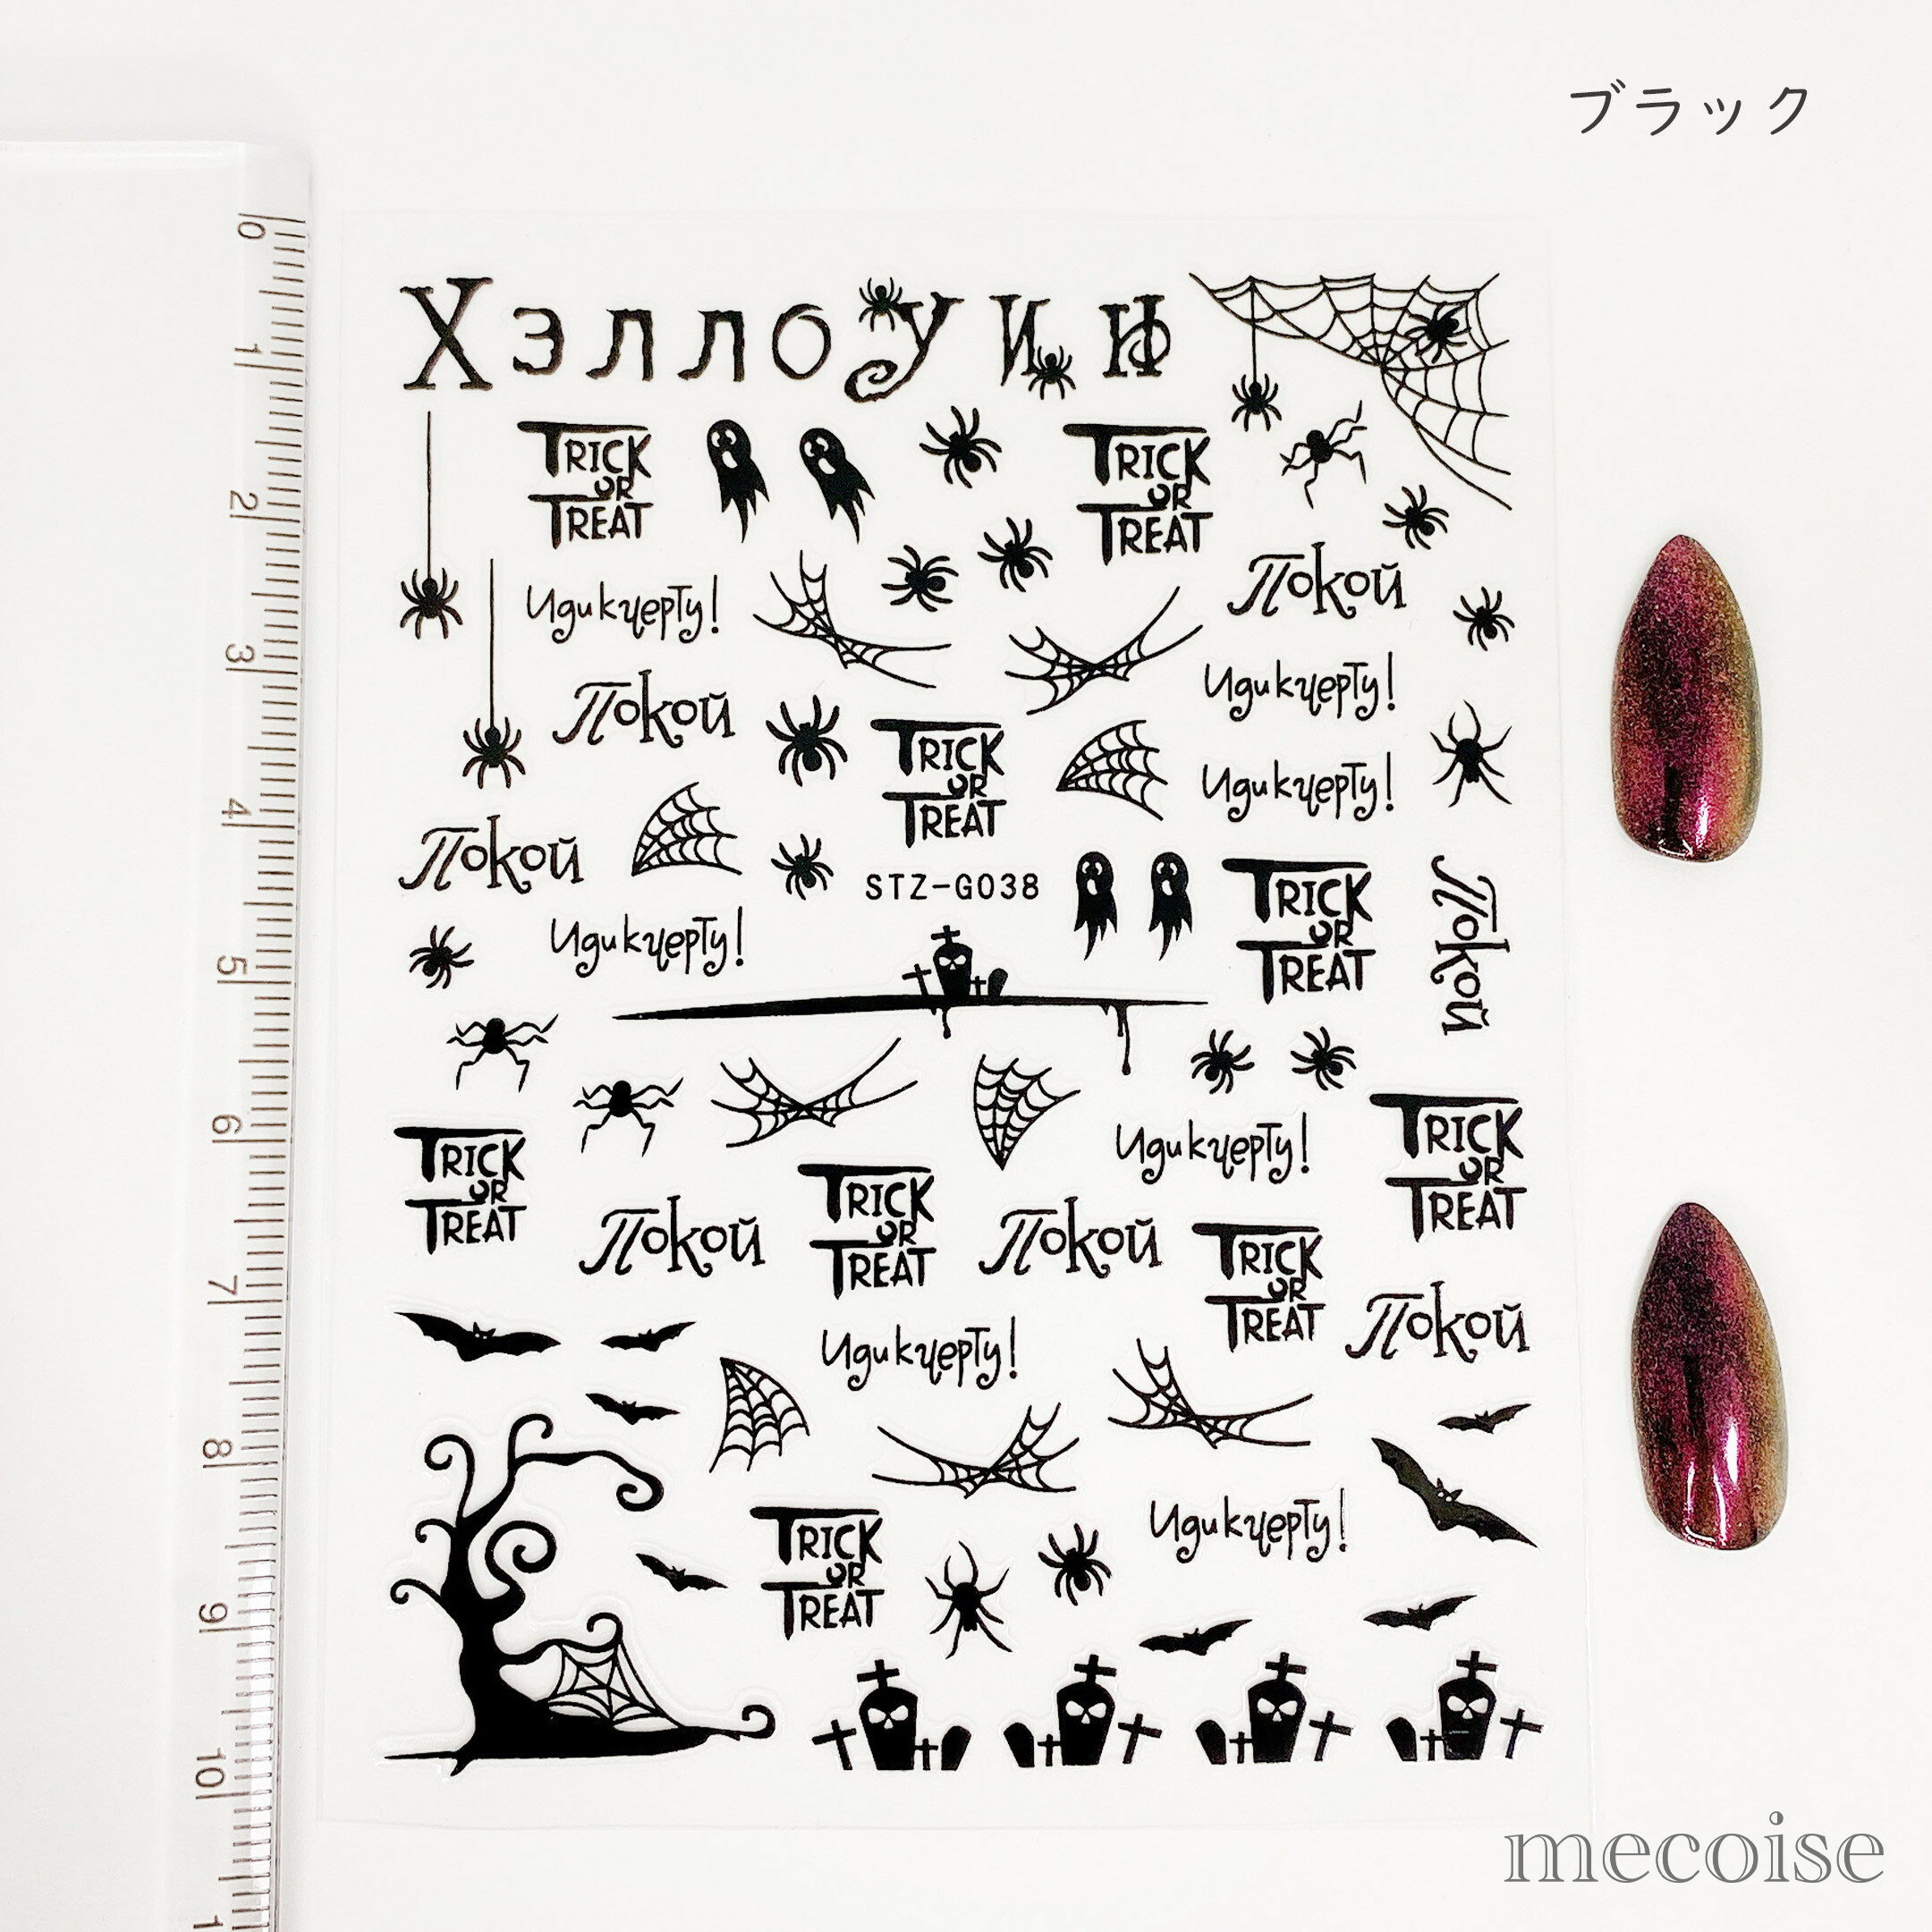 ブラック
0
1
2
3
4
5
6
7
8
9
10
1
Хэллоуин
TRICK
OR
TREAT
TRICK
OR
TREAT
Покой
Иди к черту!
Иди к черту!
Покой
TRICK
OR
TREAT
Иди к черту!
Покой
STZ-G038
TRICK
OR
TREAT
Покой
Иди к черту!
Иди к черту!
TRICK
OR
TREAT
TRICK
OR
TREAT
TRICK
OR
TREAT
Покой
Покой
TRICK
OR
TREAT
Покой
Иди к черту!
Иди к черту!
TRICK
OR
TREAT
mecoise